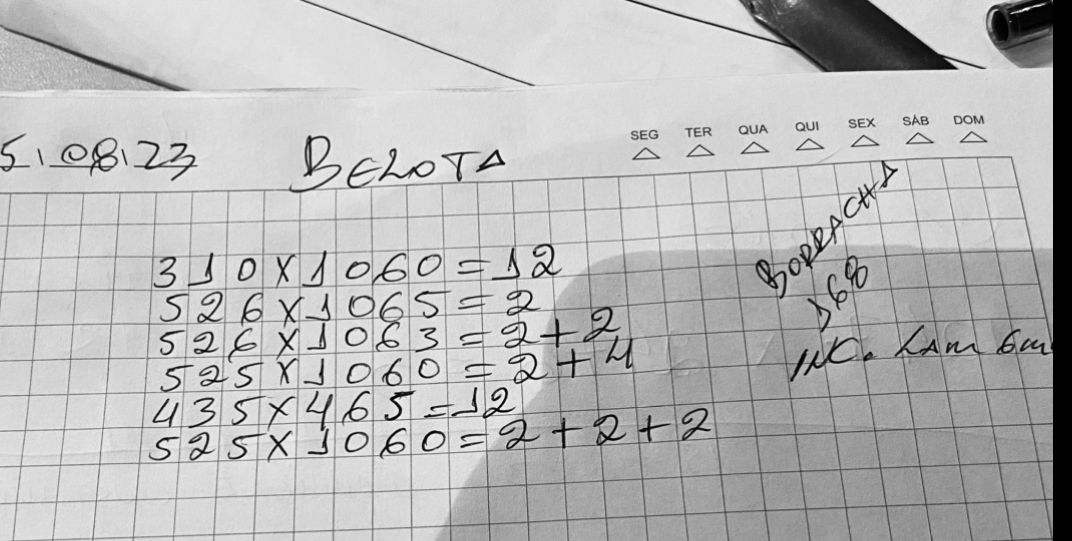 SEG TER QUA QUI SEX SÁB DOM
5.08.23 BELOTA
310X1060=12
526X1065=2
526X1063=2+2
525X1060=2+4
435X465=12
525X1060=2+2+2
BORRACHA
168
INC. LAM 6m